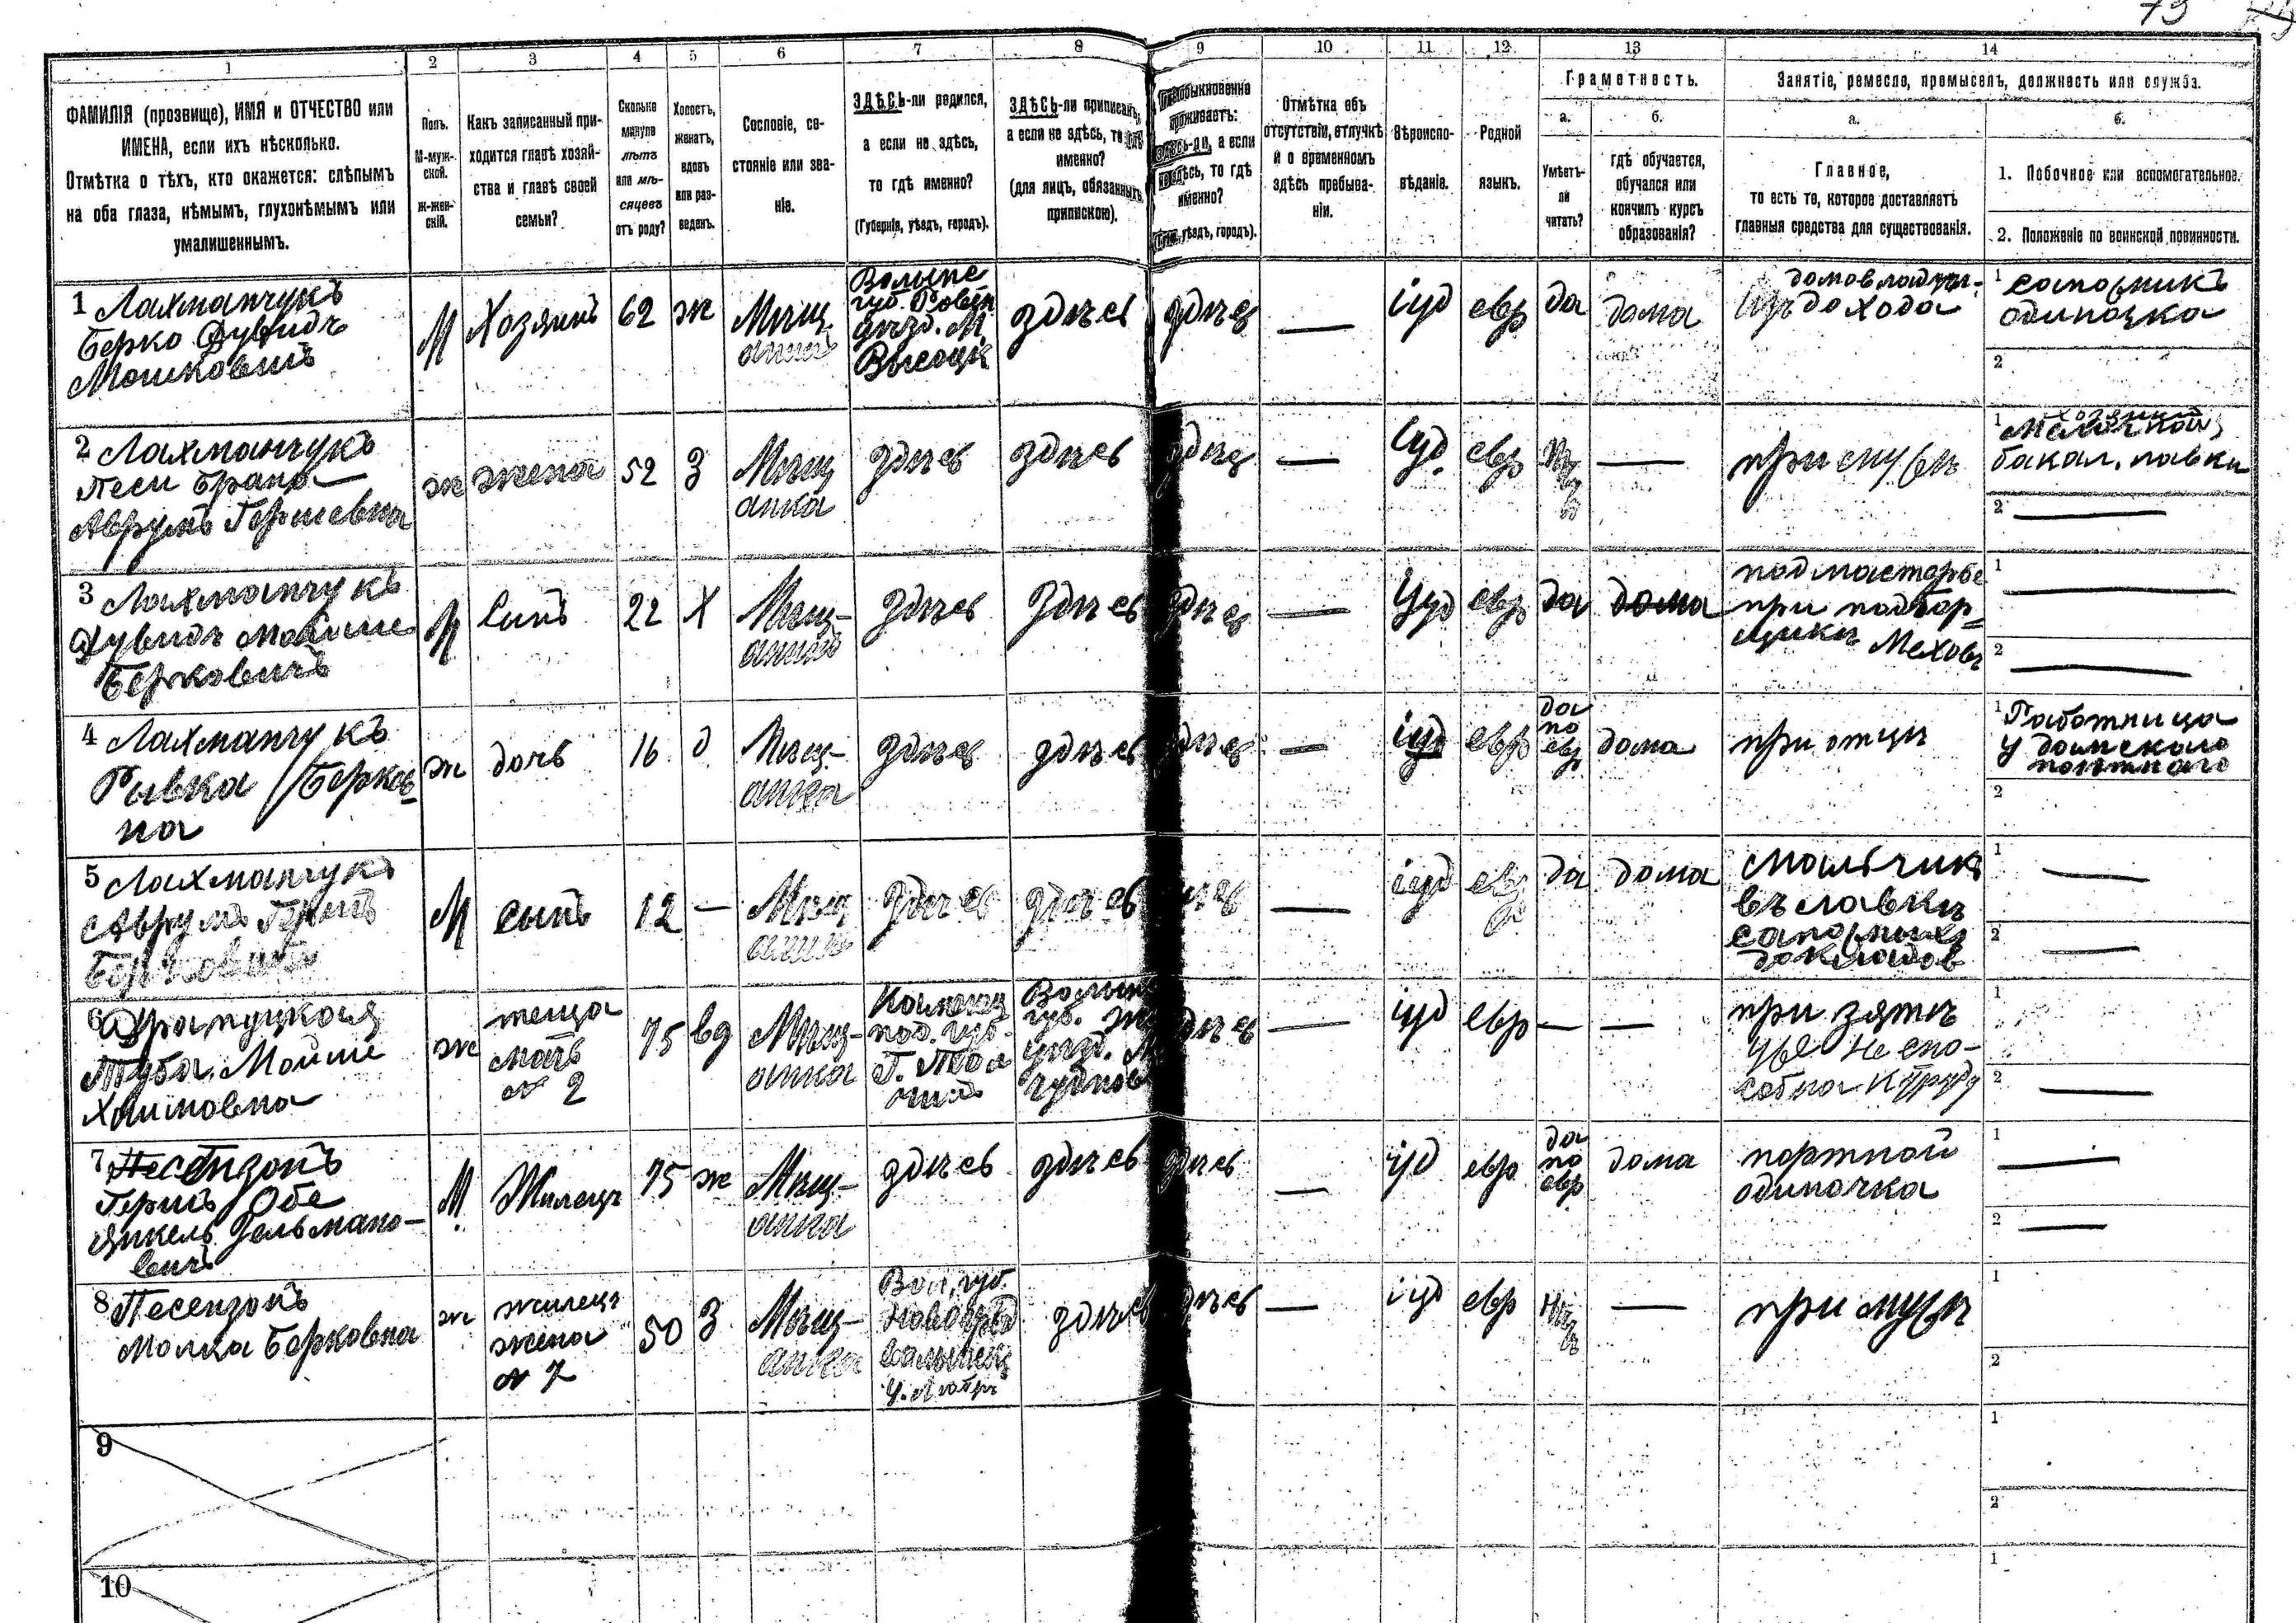 73
1
2
3
4
5
6
7
8
9
10
11
12
13
14
ФАМИЛІЯ (прозвище), ИМЯ и ОТЧЕСТВО или
ИМЕНА, если ихъ нѣсколько.
Отмѣтка о тѣхъ, кто окажется: слѣпымъ
на оба глаза, нѣмымъ, глухонѣмымъ или
умалишеннымъ.
Полъ.
М-муж-
ской.
ж-жен-
скій.
Какъ записанный при-
ходится главѣ хозяй-
ства и главѣ своей
семьи?
Сколько
минуло
лѣтъ
или мѣ-
сяцевъ
отъ роду?
Холостъ,
женатъ,
вдовъ
или раз-
веденъ.
Сословіе, со-
стояніе или зва-
ніе.
ЗДѢСЬ-ли родился,
а если не здѣсь,
то гдѣ именно?
(Губернія, уѣздъ, городъ).
ЗДѢСЬ-ли приписанъ,
а если не здѣсь, то гдѣ
именно?
(для лицъ, обязанныхъ
припискою).
обыкновенно
проживаетъ:
здѣсь-ли, а если
не здѣсь, то гдѣ
именно?
уѣздъ, городъ).
Отмѣтка объ
отсутствіи, отлучкѣ
и о временномъ
здѣсь пребыва-
ніи.
Вѣроиспо-
вѣданіе.
Родной
языкъ.
Грамотность.
а.
Умѣетъ-
ли
читать?
б.
гдѣ обучается,
обучался или
кончилъ курсъ
образованія?
Занятіе, ремесло, промыселъ, должность или служба.
а.
Главное,
то есть то, которое доставляетъ
главныя средства для существованія.
б.
1. Побочное или вспомогательное.
2. Положеніе по воинской повинности.
1 Лахманчукъ
Берко Дувидъ
Мошковичъ
М
Хозяинъ
62
ж
Мѣщ
анинъ
Волынс
губ. Ровен
уѣзд. М.
Высоцк
здѣсь
здѣсь
іуд
евр
да
дома
домовладѣл.
Изъ дохода
1 сапожникъ
одиночка
2
2 Лахманчукъ
Песи Брана
Аврумъ Гершевна
ж
жена
52
З
Мѣщ
анка
здѣсь
здѣсь
здѣсь
іуд
евр
при мужѣ
1 хозяйка
Мелочной
бакал. лавки
2
3 Лахманчукъ
Дувидъ Мойше
Берковичъ
М
Сынъ
22
Х
Мѣщ-
анинъ
здѣсь
здѣсь
здѣсь
іуд
евр
да
дома
подмастерье
при подбор
щикѣ Меховъ
1
2
4 Лахманчукъ
Ривка Берков
на
ж
дочь
16
д
Мѣщ-
анка
здѣсь
здѣсь
здѣсь
іуд
евр
да
по
евр
дома
при отцѣ
1 Работница
у дамскаго
портнаго
2
5 Лахманчукъ
Аврумъ Гершъ
Берковичъ
М
сынъ
12
Мѣщ
анинъ
здѣсь
здѣсь
іуд
евр
да
дома
Мальчикъ
въ лавкѣ
сапожных
1
2
6
Туба Мойше
Хаимовна
ж
теща
мать
№ 2
75
вд
Мѣщ-
анка
под. губ.
здѣсь
іуд
евр
при зятѣ
уже не спо-
собна къ труду
1
2
7 Песензонъ
Гершъ Обе
Янкель Зельмано-
вичъ
М
Жилецъ
75
ж
Мѣщ-
анка
здѣсь
здѣсь
здѣсь
іуд
евр
да
по
евр
дома
портной
одиночка
1
2
8 Песензонъ
Малка Берковна
ж
жилецъ
жена
№ 7
50
З
Мѣщ-
анка
Вол. губ.
Новоград
волынск
здѣсь
здѣсь
іуд
евр
при мужѣ
1
2
9
1
2
10
1